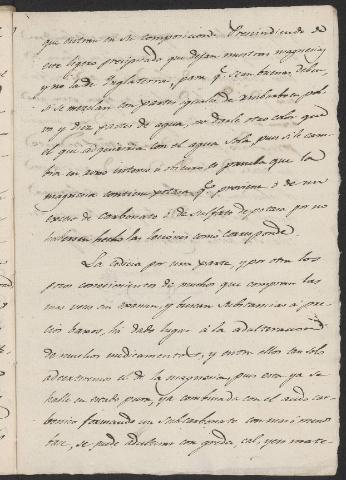 que entran en su composicion. Prescindiendo de
este ligero precipitado que dejan nuestras magnesias
y no la de Inglaterra, para q.e sean buenas, deben
si se mezclan con partes iguales de ruibarbo en pol-
vo y diez partes de agua, no darle otro color que
el que adquiriria con el agua sola, pues si le cam-
bia en rojo intenso ú obscuro es prueba que la
magnesia contiene potasa q.e proviene ó de un
exceso de carbonato ó de sulfato de potasa por no
haberse hecho las lociones como corresponde.
La codicia por una parte, y por otra los
pocos conocimientos de muchos que compran las
mas veces sin examen, y buscan substancias á pre-
cios baxos, ha dado lugar á la adulteracion
de muchos medicamentos, y entre ellos tan solo
advertiremos el de la magnesia, pues esta ya se
halle en estado puro, ya combinada con el acido car-
bonico formando un subcarbonato con mas ó menos
base, se puede adulterar con greda, cal, yeso mate-